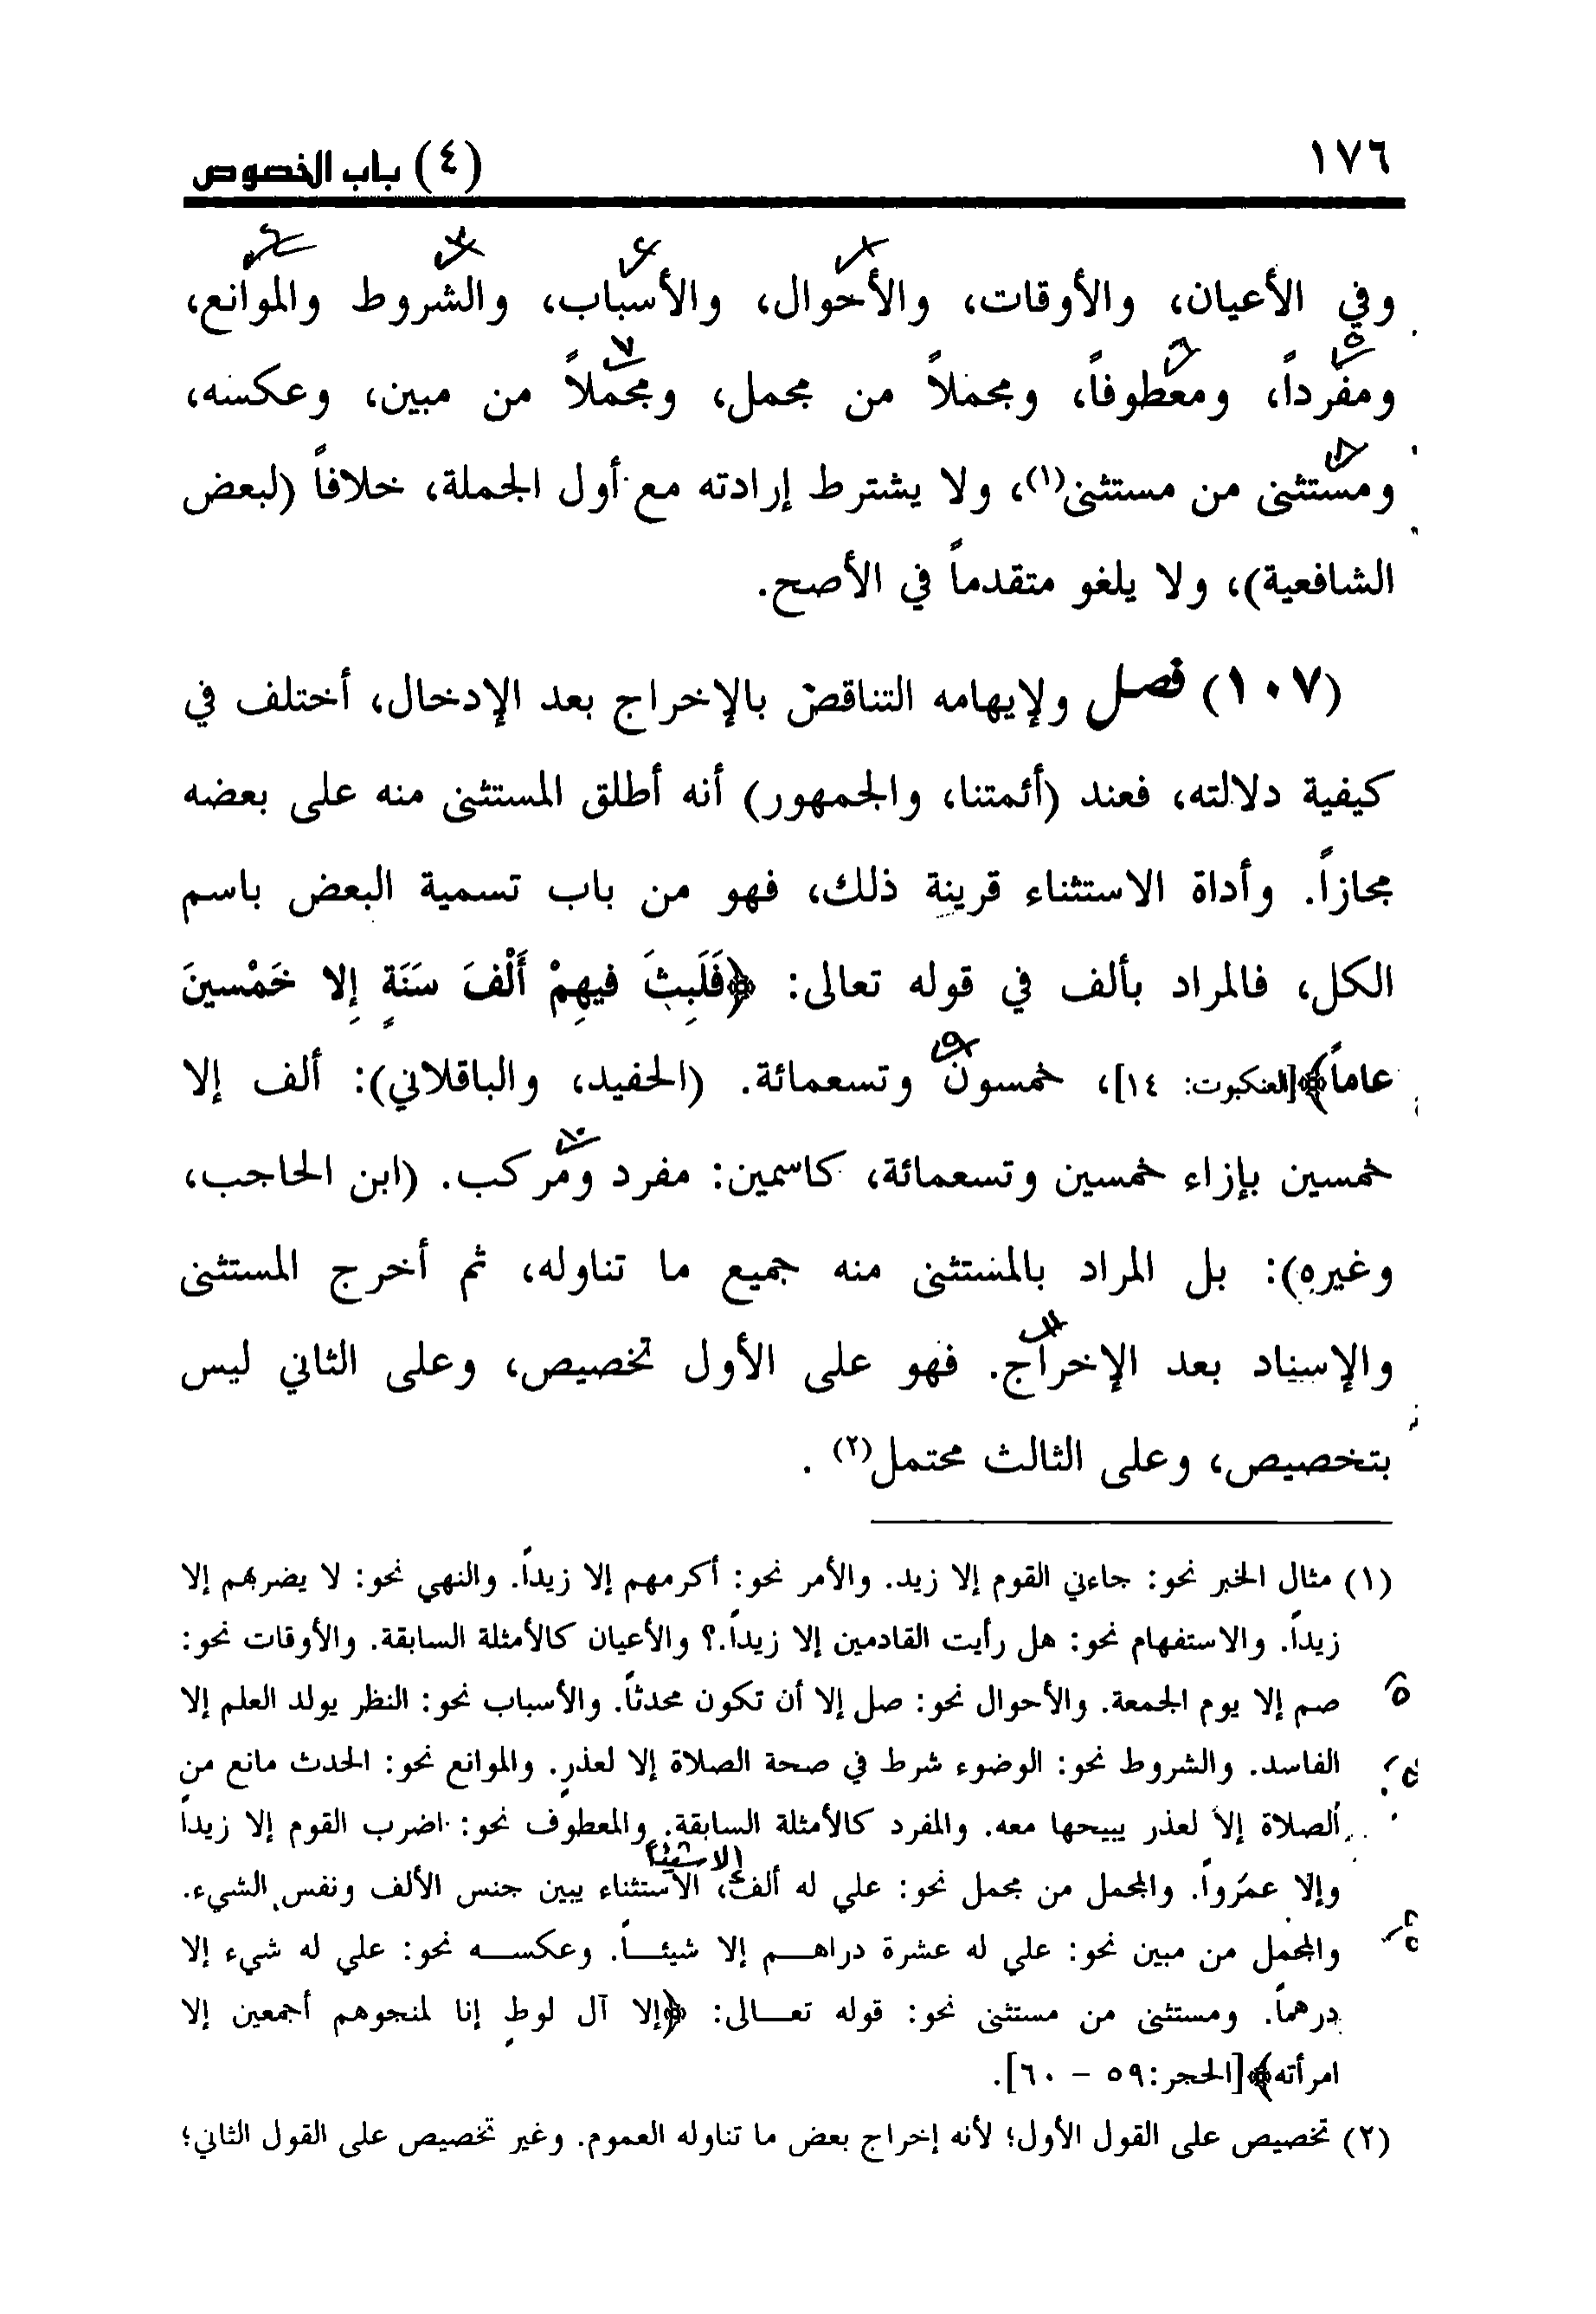 ١٧٦ (٤) باب الخصوص
وفي الأعيان، والأوقات، والأحوال، والأسباب، والشروط والموانع،
ومفرداً، ومعطوفاً، ومجملاً من مجمل، ومجملاً من مبين، وعكسه،
ومستثنى من مستثنى(١)، ولا يشترط إرادته مع أول الجملة، خلافاً (لبعض
الشافعية)، ولا يلغو متقدماً في الأصح.
(١٠٧) فصل ولإيهامه التناقض بالإخراج بعد الإدخال، أختلف في
كيفية دلالته، فعند (أئمتنا، والجمهور) أنه أطلق المستثنى منه على بعضه
مجازاً. وأداة الاستثناء قرينة ذلك، فهو من باب تسمية البعض باسم
الكل، فالمراد بألف في قوله تعالى: ﴿فَلَبِثَ فيهِمْ أَلْفَ سَنَةٍ إِلا خَمْسينَ
عاماً﴾[العنكبوت: ١٤]، خمسون وتسعمائة. (الحفيد، والباقلاني): ألف إلا
خمسين بإزاء خمسين وتسعمائة، كاسمين: مفرد ومركب. (ابن الحاجب،
وغيره): بل المراد بالمستثنى منه جميع ما تناوله، ثم أخرج المستثنى
والإسناد بعد الإخراج. فهو على الأول تخصيص، وعلى الثاني ليس
بتخصيص، وعلى الثالث محتمل(٢) .
(١) مثال الخبر نحو: جاءني القوم إلا زيد. والأمر نحو: أكرمهم إلا زيداً. والنهي نحو: لا يضربهم إلا
زيداً. والاستفهام نحو: هل رأيت القادمين إلا زيداً.؟ والأعيان كالأمثلة السابقة. والأوقات نحو:
صم إلا يوم الجمعة. والأحوال نحو: صل إلا أن تكون محدثاً. والأسباب نحو: النظر يولد العلم إلا
الفاسد. والشروط نحو: الوضوء شرط في صحة الصلاة إلا لعذرٍ. والموانع نحو: الحدث مانع من
الصلاة إلا لعذر يبيحها معه. والمفرد كالأمثلة السابقة. والمعطوف نحو: اضرب القوم إلا زيداً
إلا شيئاً
وإلا عمرواً. والمجمل من مجمل نحو: علي له ألف، الاستثناء يبين جنس الألف ونفس الشيء.
والمجمل من مبين نحو: علي له عشرة دراهم إلا شيئاً. وعكسه نحو: علي له شيء إلا
درهماً. ومستثنى من مستثنى نحو: قوله تعالى: ﴿إلا آل لوطٍ إنا لمنجوهم أجمعين إلا
امرأته﴾[الحجر:٥٩ – ٦٠].
(٢) تخصيص على القول الأول؛ لأنه إخراج بعض ما تناوله العموم. وغير تخصيص على القول الثاني؛